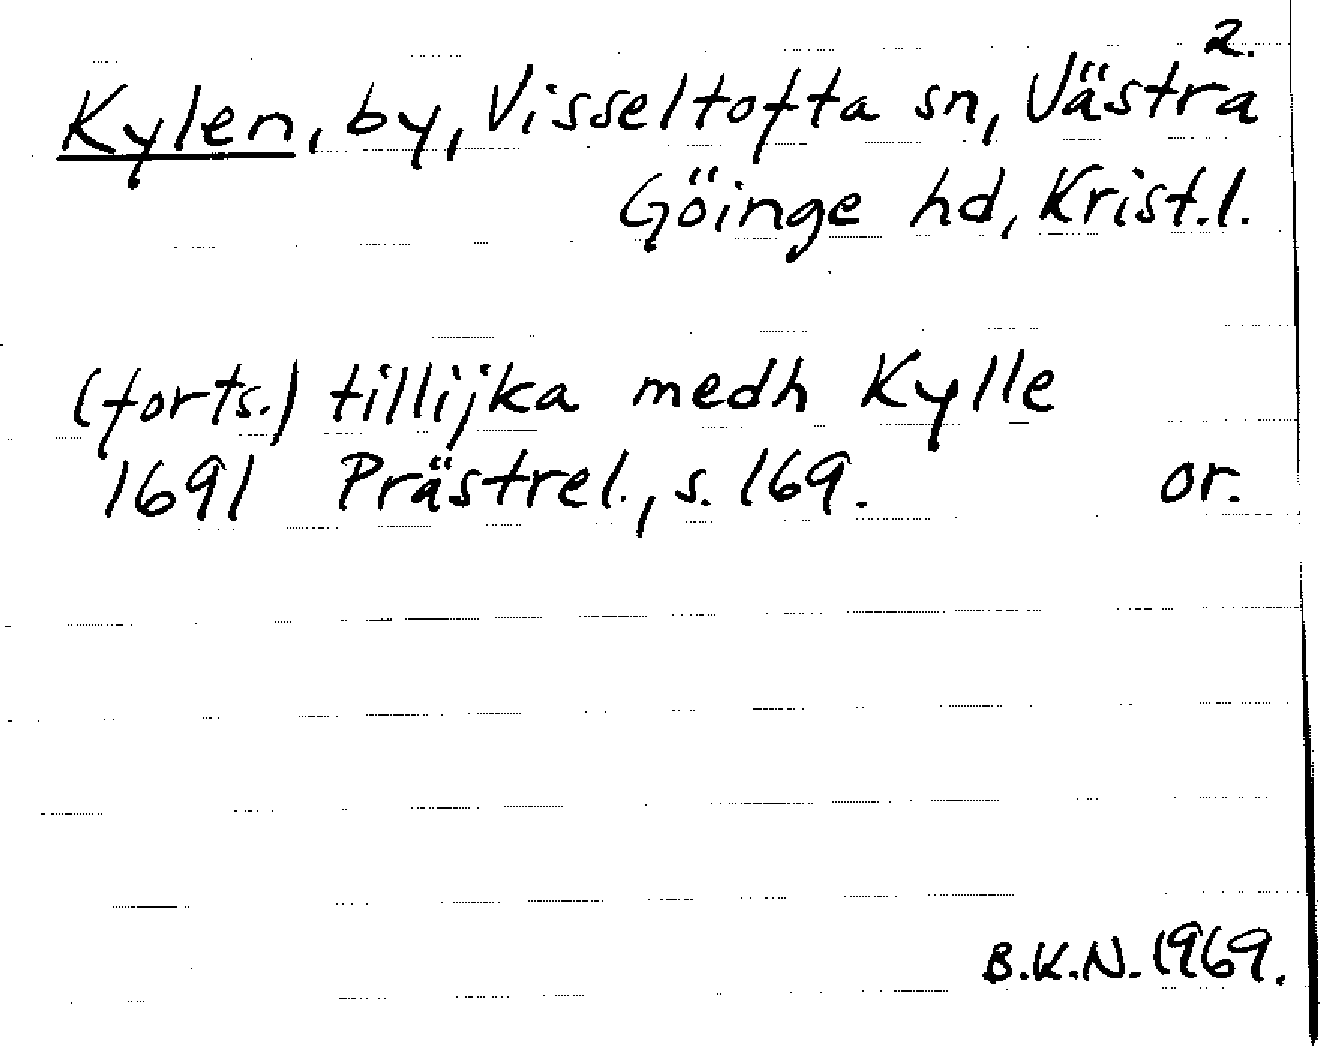 2.
Kylen, by, Visseltofta sn, Västra
Göinge hd, Krist.l.
(forts.) tillijka medh Kylle
1691 Prästrel., s. 169. or.
B.K.N. 1969.